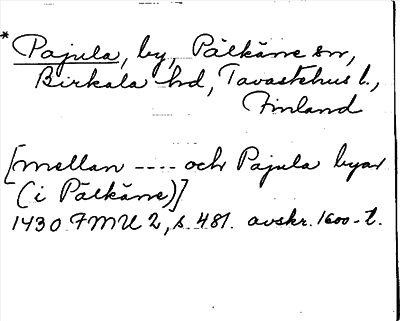 * Pajula, by, Pälkäne sn,
Birkala hd, Tavastehus l.,
Finland
[mellan ---- och Pajula byar
(i Pälkäne)]
1430 FMU 2, s. 481. avskr. 1600-t.